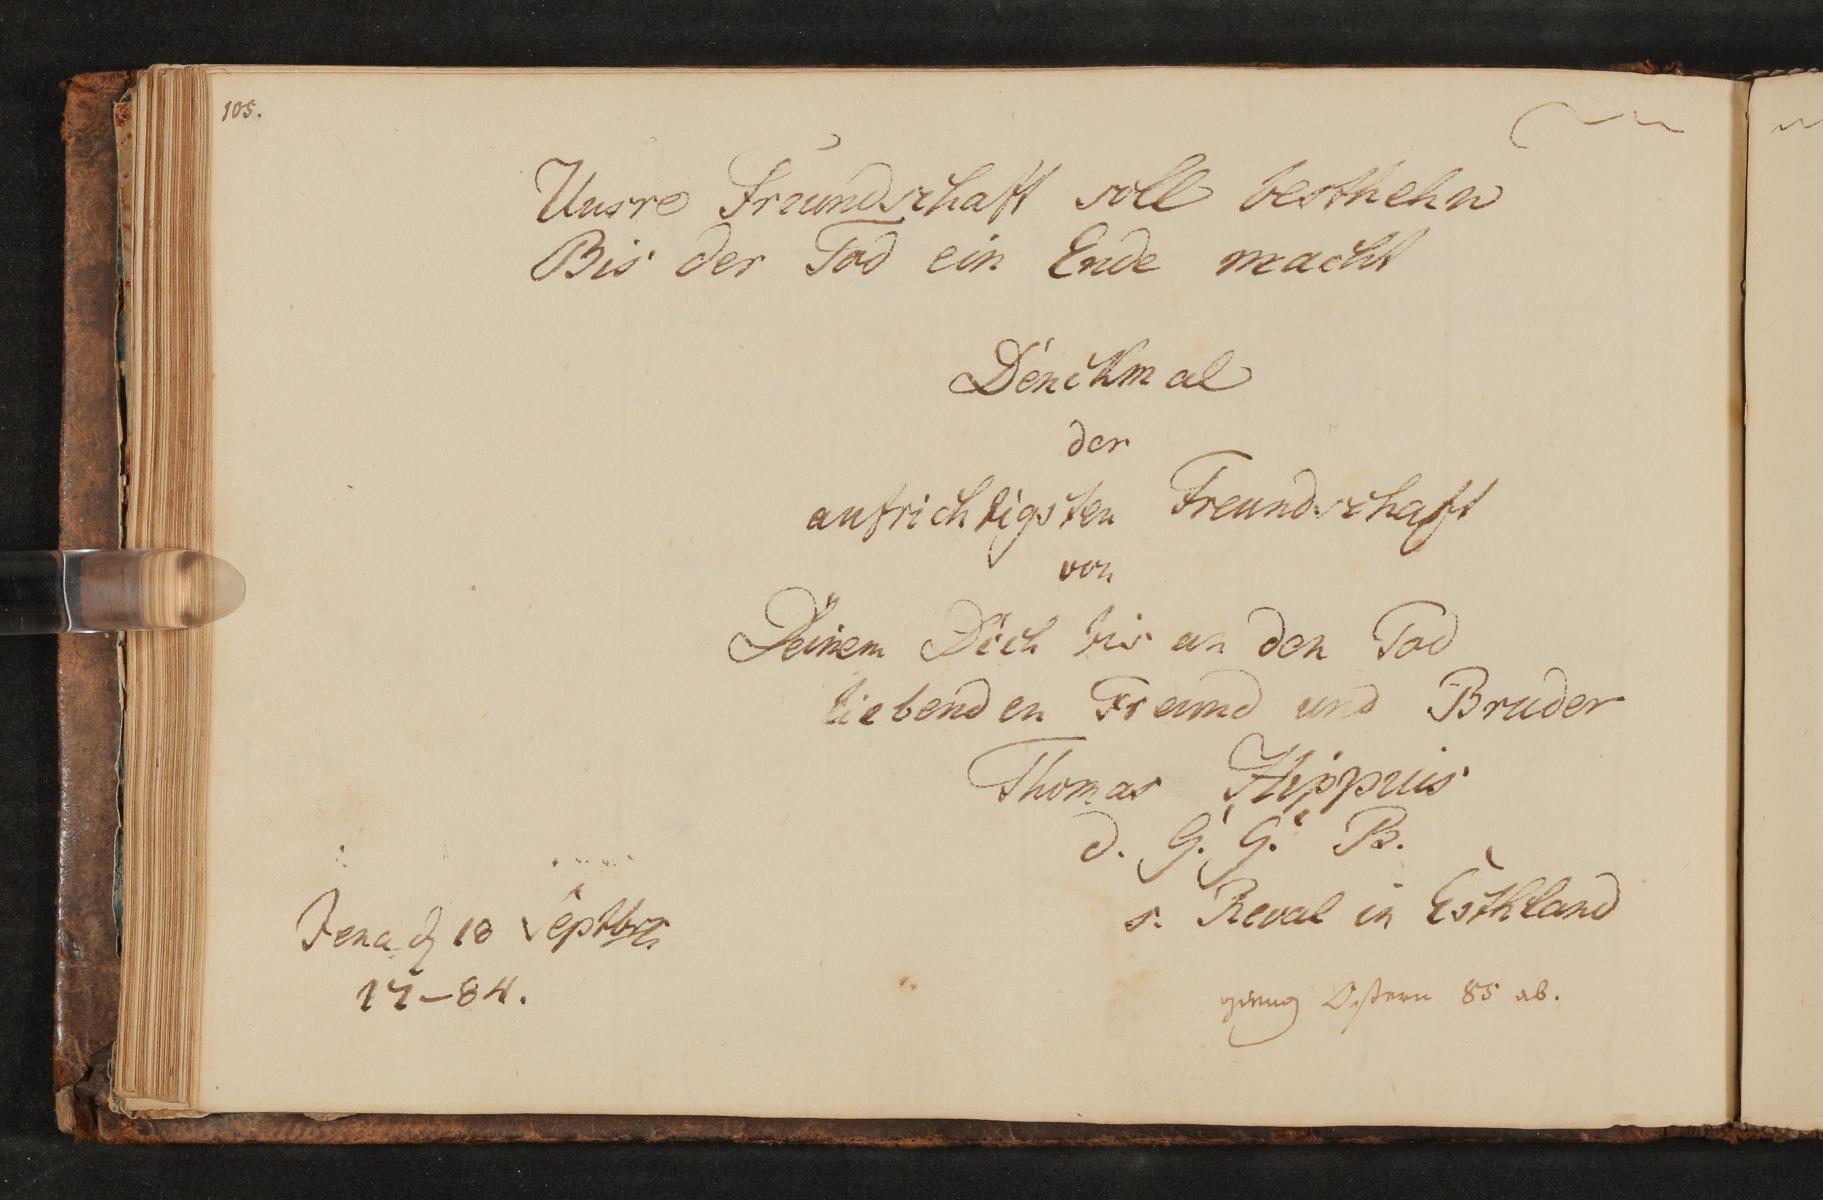 105.
Unsre Freundschaft soll besthehn
Bis der Tod ein Ende macht
Denckmal
der
aufrichtigsten Freundschaft
von
Deinem Dich bis an den Tod
liebenden Freund und Bruder
Thomas Hippius
d. G. G. B.
s. Reval in Esthland
Jena d 18 Septbr
17–84.
gieng Ostern 85 ab.